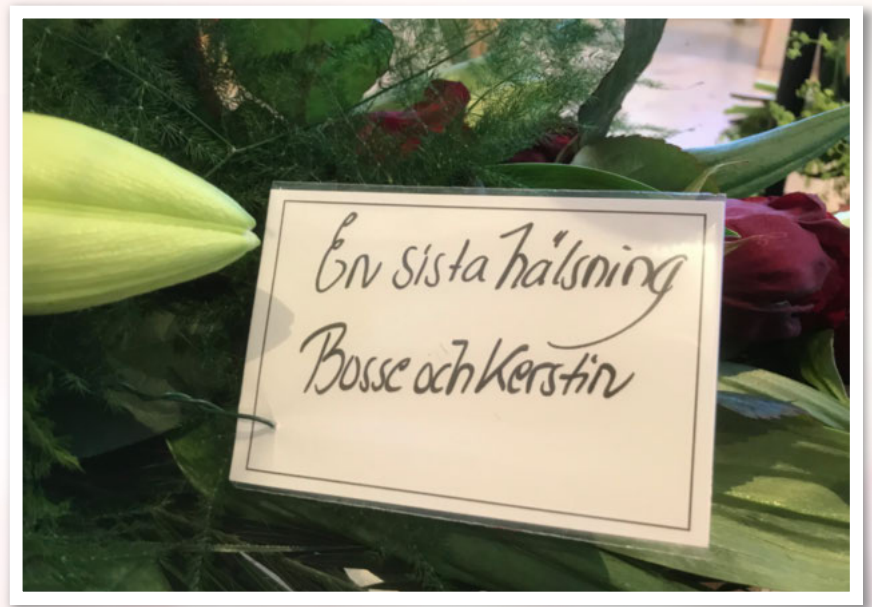 En sista hälsning
Bosse och Kerstin